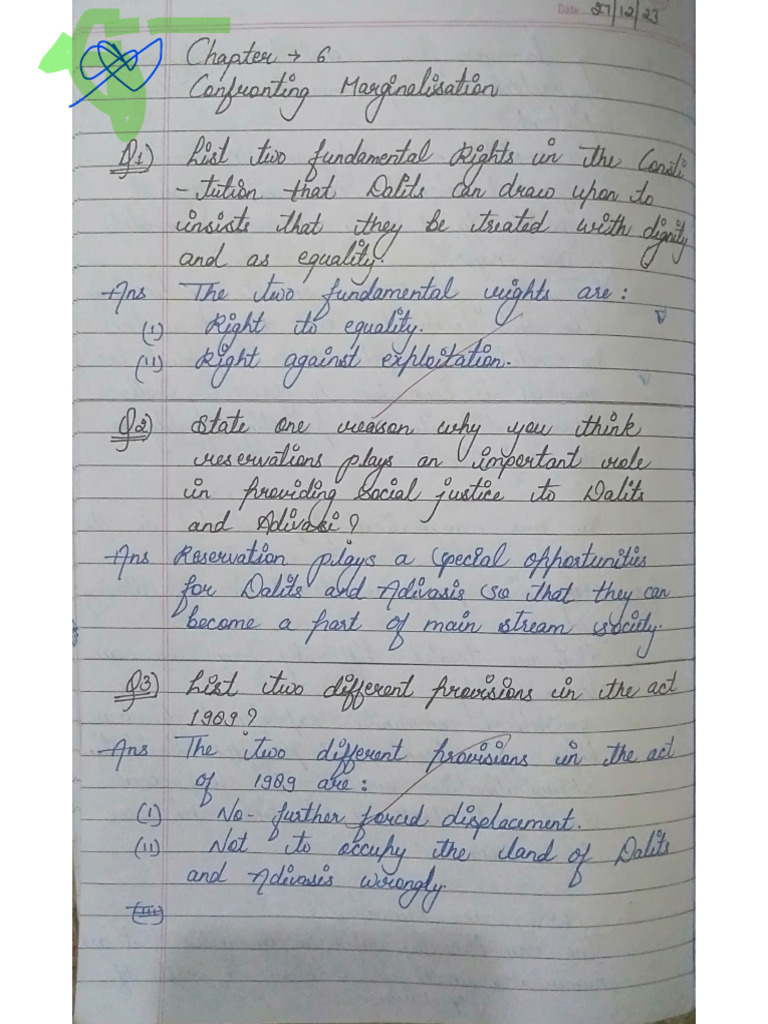 Date... 27/12/23
Chapter → 6
Confronting Marginalisation
Q1) List two fundamental Rights in the Consti
-tution that Dalits can draw upon to
insists that they be treated with dignity
and as equality.
Ans The two fundamental rights are:
(i) Right to equality.
(ii) Right against exploitation.
Q2) State one reason why you think
reservations plays an important role
in providing social justice to Dalits
and Adivasi?
Ans Reservation plays a special opportunities
for Dalits and Adivasis so that they can
become a part of main stream society.
Q3) List two different provisions in the act
1989?
Ans The two different provisions in the act
of 1989 are:
(i) No-further forced displacement.
(ii) Not to occupy the land of Dalits
and Adivasis wrongly.
(iii)